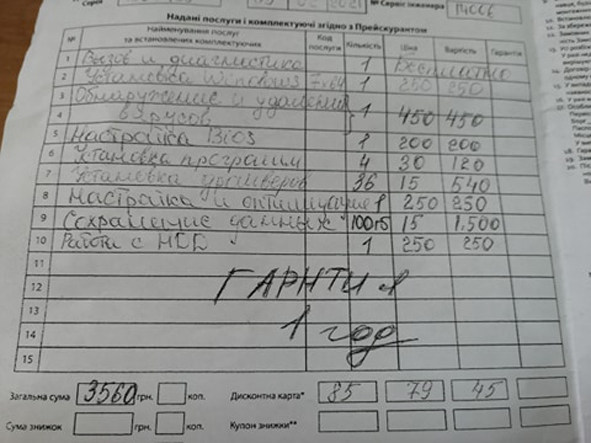 02 2021 № Сервіс інженера П4006
Надані послуги і комплектуючі згідно з Прейскурантом
№ Найменування послуг та встановлених комплектуючих Код послуги Кількість Ціна Вартість Гарантія
1 Вызов и диагностика 1 Бесплатно
2 Установка Windows 7x64 1 250 250
3 Обнаружение и удаление
4 вирусов 1 450 450
5 Настройка Bios 1 200 200
6 Установка программ 4 30 120
7 Установка драйверов 36 15 540
8 Настройка и оптимизация 1 250 250
9 Сохранение данных 100гб 15 1.500
10 Работа с 1 250 250
11
12 ГАРНТИЯ
13 1 год
14
15
Загальна сума 3560 грн. коп. Дисконтна карта* 85 79 45
Сума знижок грн. коп. Купон знижки**